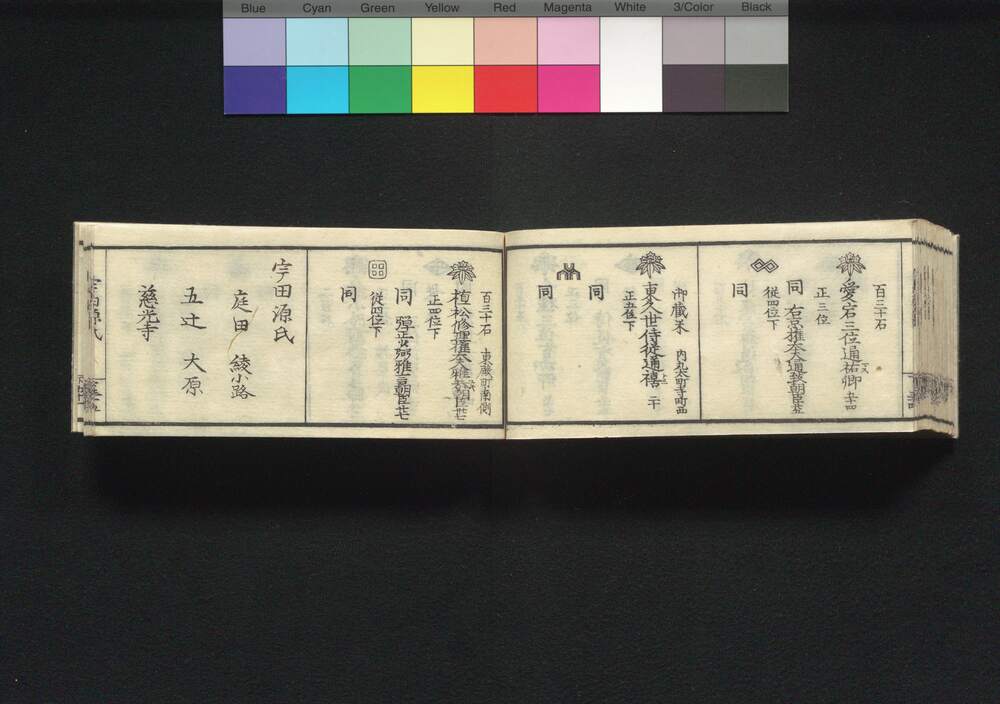 Blue Cyan Green Yellow Red Magenta White 3/Color Black
百三十石
愛宕三位通祐卿
正三位
同 右京権大夫通致朝臣
従四位下
同
御蔵米 内丸太町寺町西
東久世侍従通禧 二十
正五位下
同
同
百三十石 東殿町南側
植松修理権大夫雅恭朝臣
正四位下
同 弾正少弼雅言朝臣
従四位下
同
宇田源氏
庭田 綾小路
五辻 大原
慈光寺
宇田源氏